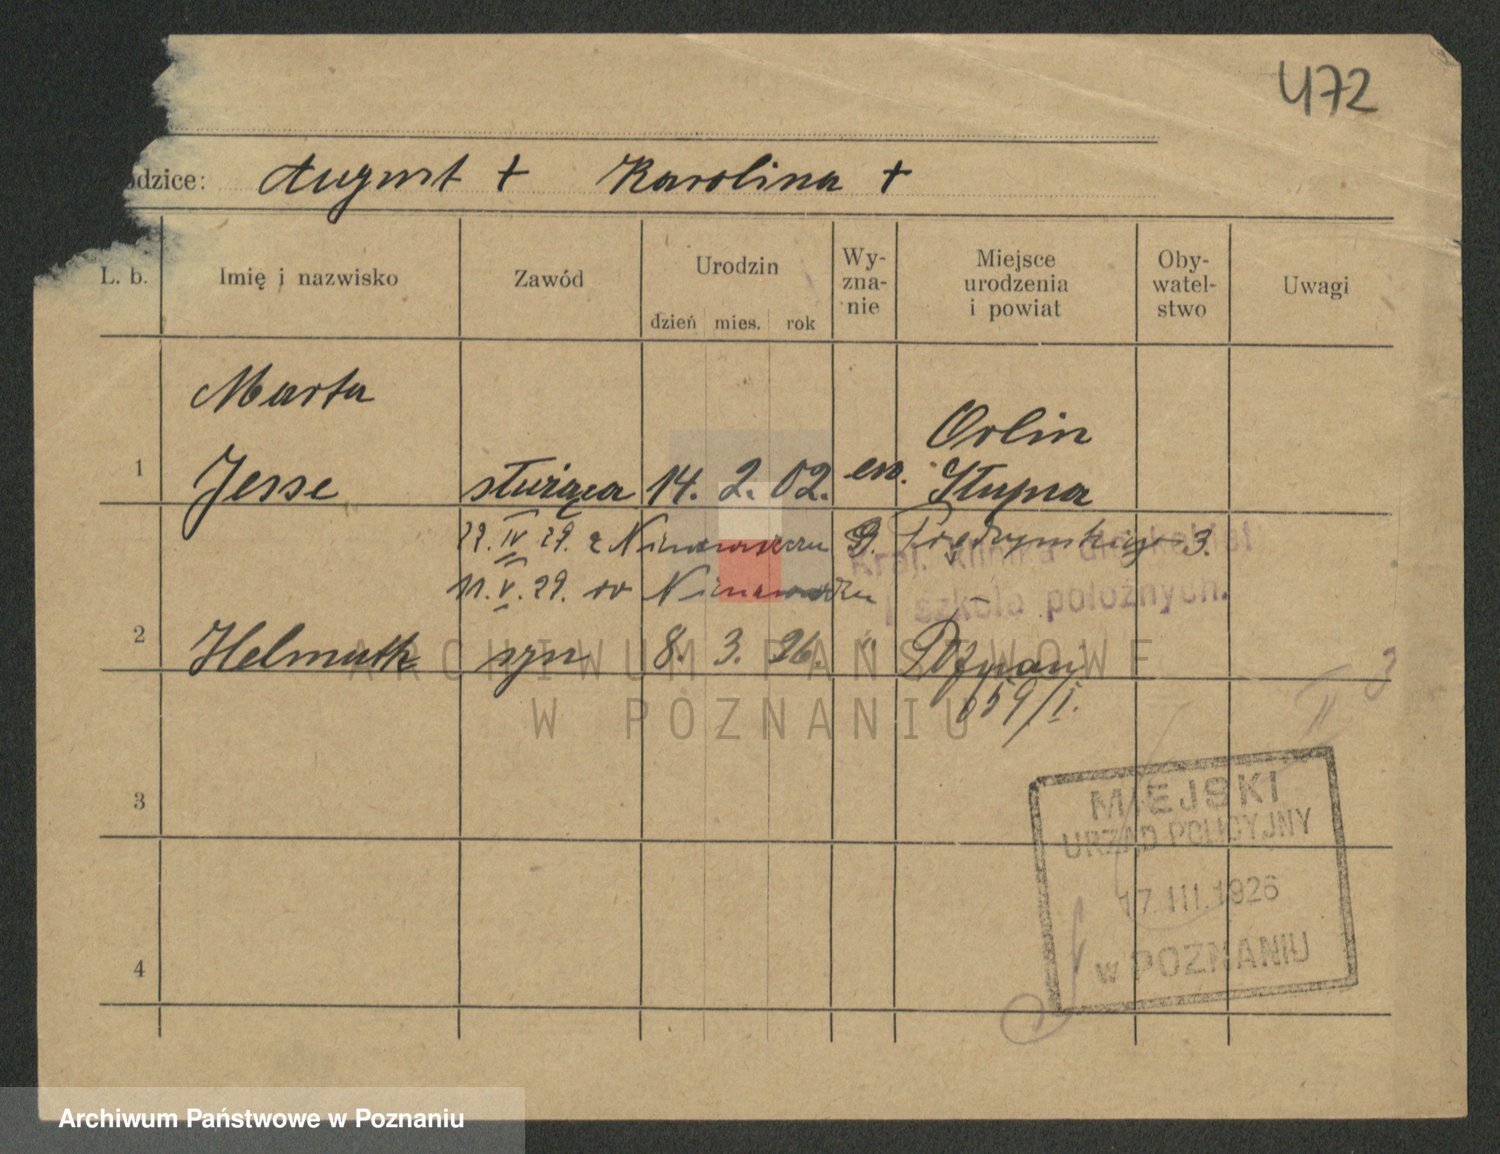 472
odzice: August + Karolina +
L. b. Imię i nazwisko Zawód Urodzin Wy-zna-nie Miejsce urodzenia i powiat Oby-watel-stwo Uwagi
dzień mies. rok
Marta
Orlin
1 Jesse służąca 14. 2. 02. ew. Słupca
22. IV 29. z 3.
Kral. klinika
11. V. 29. do
i szkoła położnych.
2 Helmuth syn 8. 3. 26. " Poznań
ARCHIWUM PAŃSTWOWE
W POZNANIU
659/I.
3
MIEJSKI
URZĄD POLICYJNY
17. III. 1926
w POZNANIU
4
Archiwum Państwowe w Poznaniu